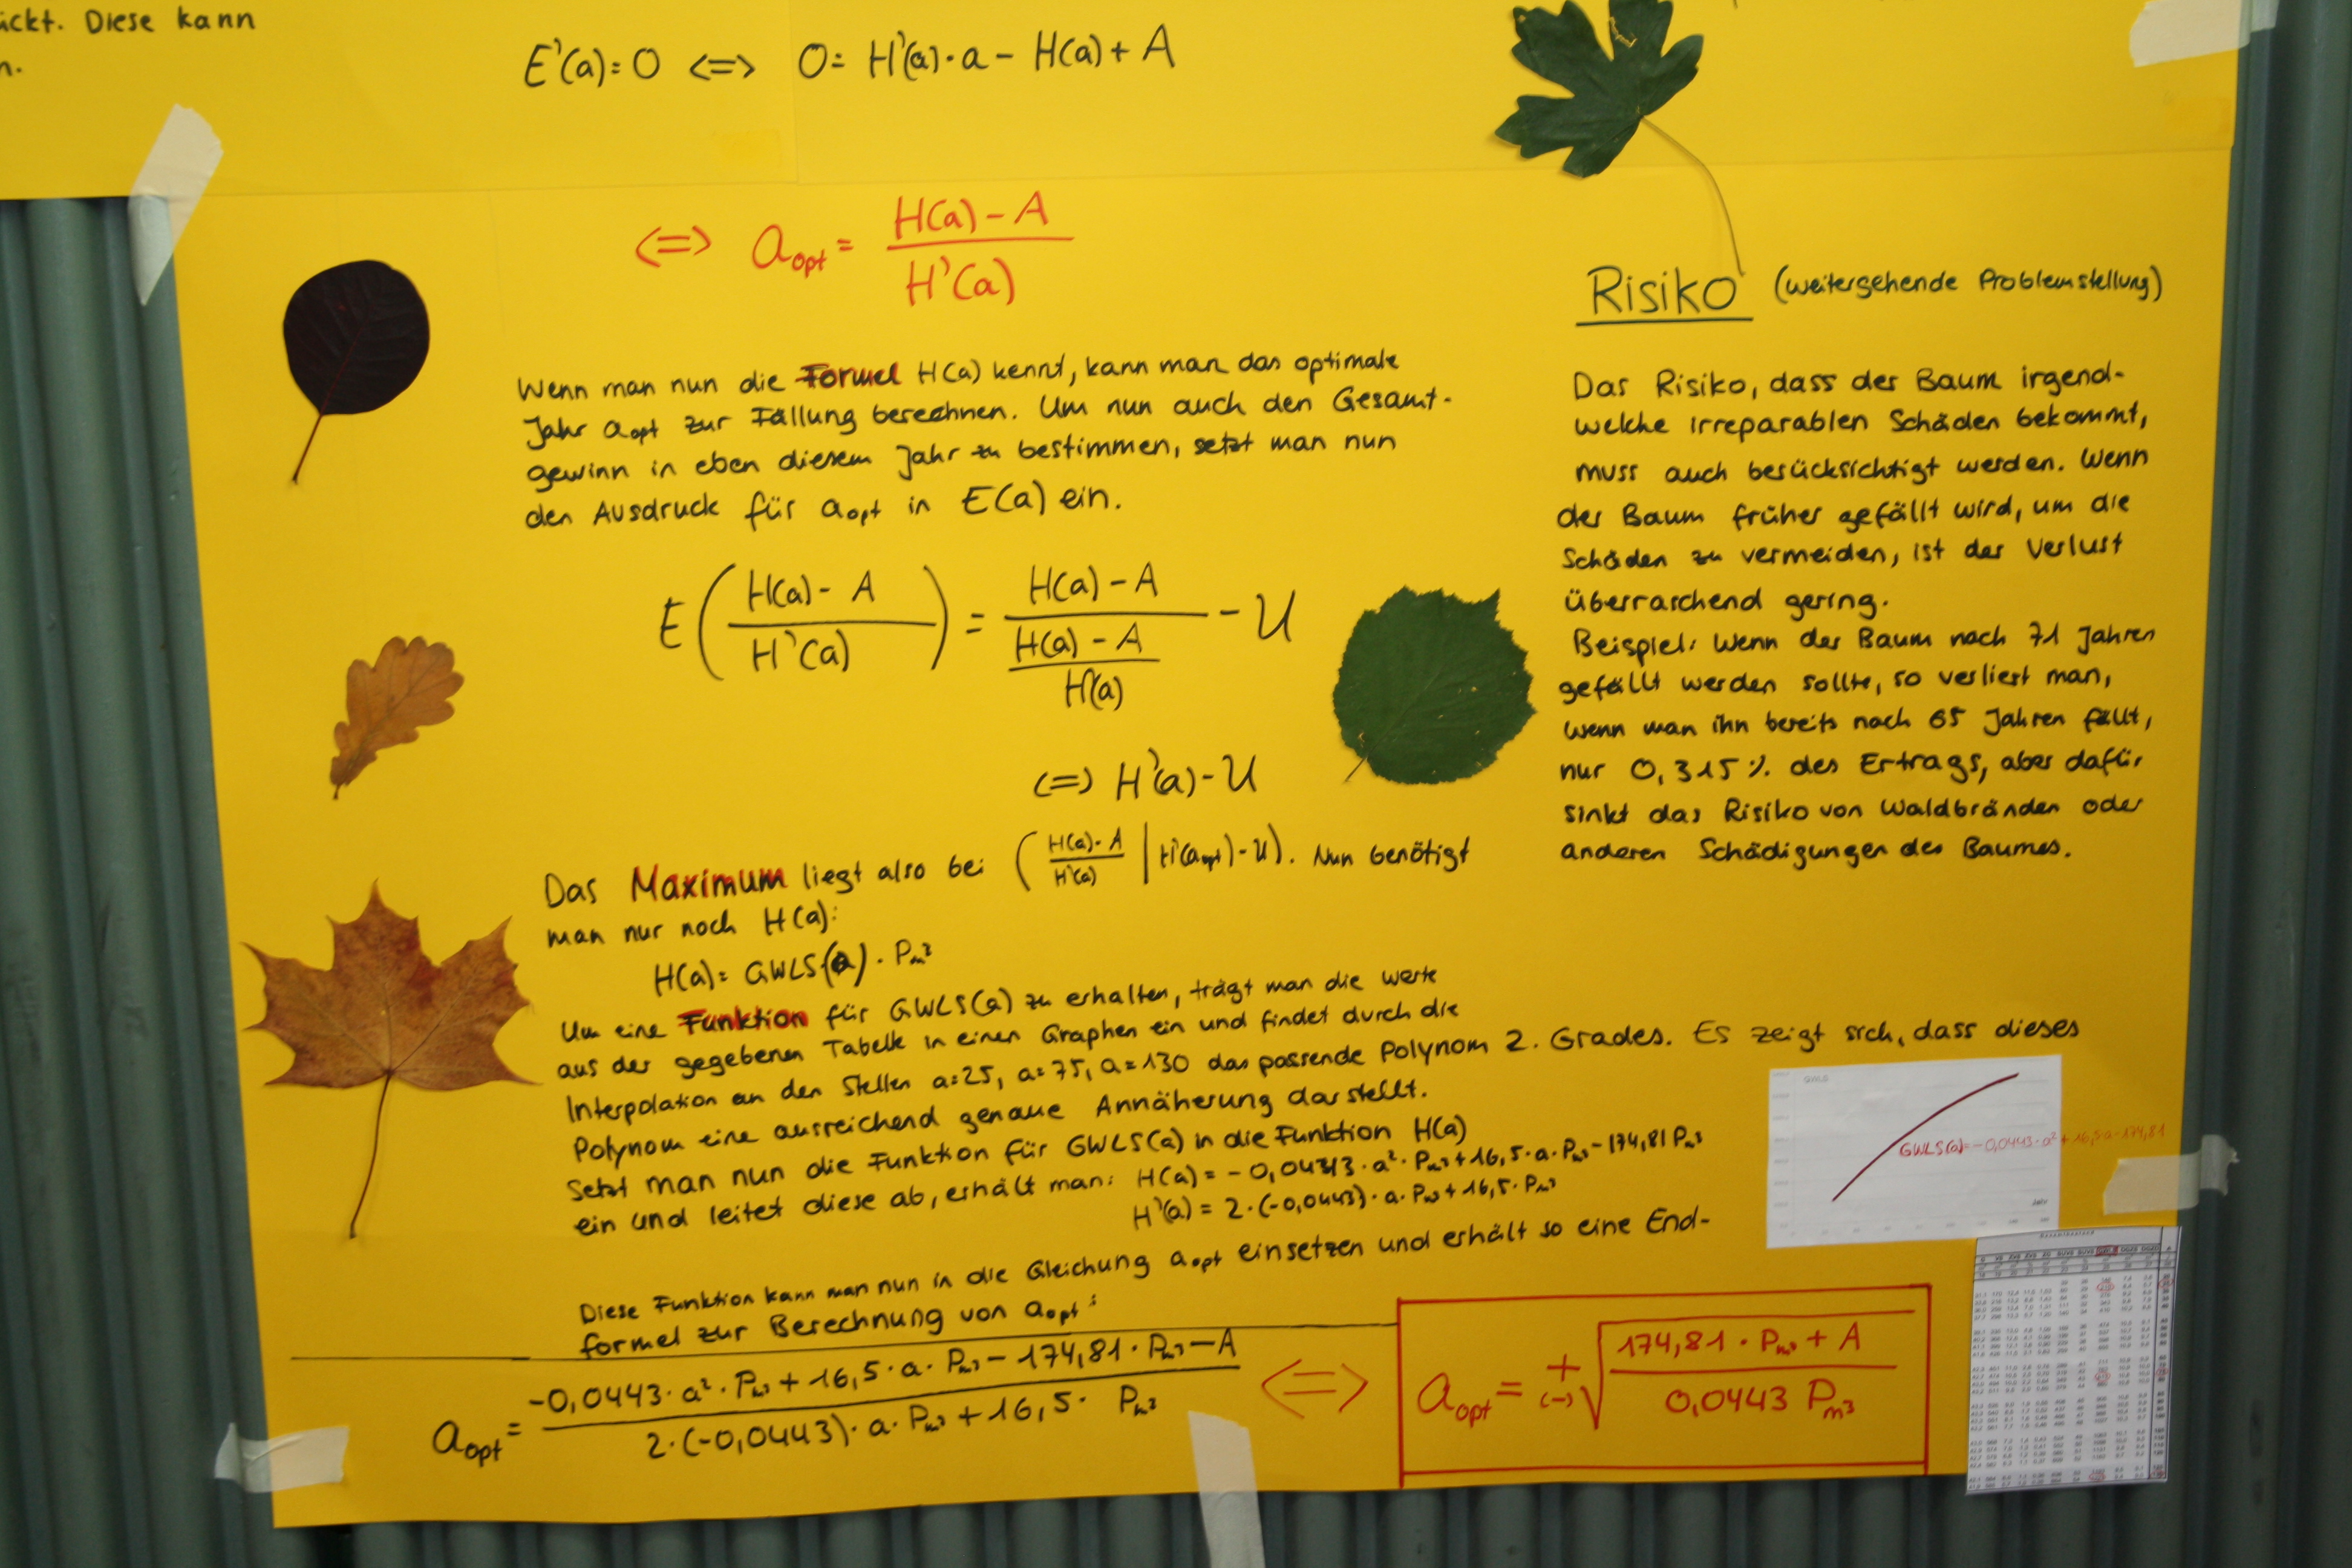 ückt. Diese kann
n.
E'(a)=0 <=> 0= H'(a)·a - H(a) + A
<=> a_opt = (H(a) - A) / (H'(a))
Wenn man nun die Formel H(a) kennt, kann man das optimale
Jahr a_opt zur Fällung berechnen. Um nun auch den Gesamt-
gewinn in eben diesem Jahr zu bestimmen, setzt man nun
den Ausdruck für a_opt in E(a) ein.
E( (H(a) - A) / (H'(a)) ) = (H(a) - A) / ( (H(a) - A) / H'(a) ) - U
<=> H'(a) - U
Das Maximum liegt also bei ( (H(a) - A) / H'(a) | H'(a_opt) - U). Nun benötigt
man nur noch H(a):
H(a) = GWLS(a) · P_m³
Um eine Funktion für GWLS(a) zu erhalten, trägt man die Werte
aus der gegebenen Tabelle in einen Graphen ein und findet durch die
Interpolation an den Stellen a=25, a=75, a=130 das passende Polynom 2. Grades. Es zeigt sich, dass dieses
Polynom eine ausreichend genaue Annäherung darstellt.
Setzt man nun die Funktion für GWLS(a) in die Funktion H(a)
ein und leitet diese ab, erhält man: H(a) = -0,0443·a²·P_m³ + 16,5·a·P_m³ - 174,81 P_m³
H'(a) = 2·(-0,0443)·a·P_m³ + 16,5·P_m³
Diese Funktion kann man nun in die Gleichung a_opt einsetzen und erhält so eine End-
formel zur Berechnung von a_opt:
a_opt = (-0,0443·a²·P_m³ + 16,5·a·P_m³ - 174,81·P_m³ - A) / (2·(-0,0443)·a·P_m³ + 16,5· P_m³) <=> a_opt = +(-) √( (174,81·P_m³ + A) / (0,0443 P_m³) )
Risiko (weitergehende Problemstellung)
Das Risiko, dass der Baum irgend-
welche irreparablen Schäden bekommt,
muss auch berücksichtigt werden. Wenn
der Baum früher gefällt wird, um die
Schäden zu vermeiden, ist der Verlust
überraschend gering.
Beispiel: Wenn der Baum nach 71 Jahren
gefällt werden sollte, so verliert man,
wenn man ihn bereits nach 65 Jahren fällt,
nur 0,315% des Ertrags, aber dafür
sinkt das Risiko von Waldbränden oder
anderen Schädigungen des Baumes.
GWLS
GWLS(a)=-0,0443·a²+16,5a-174,81
Jahr